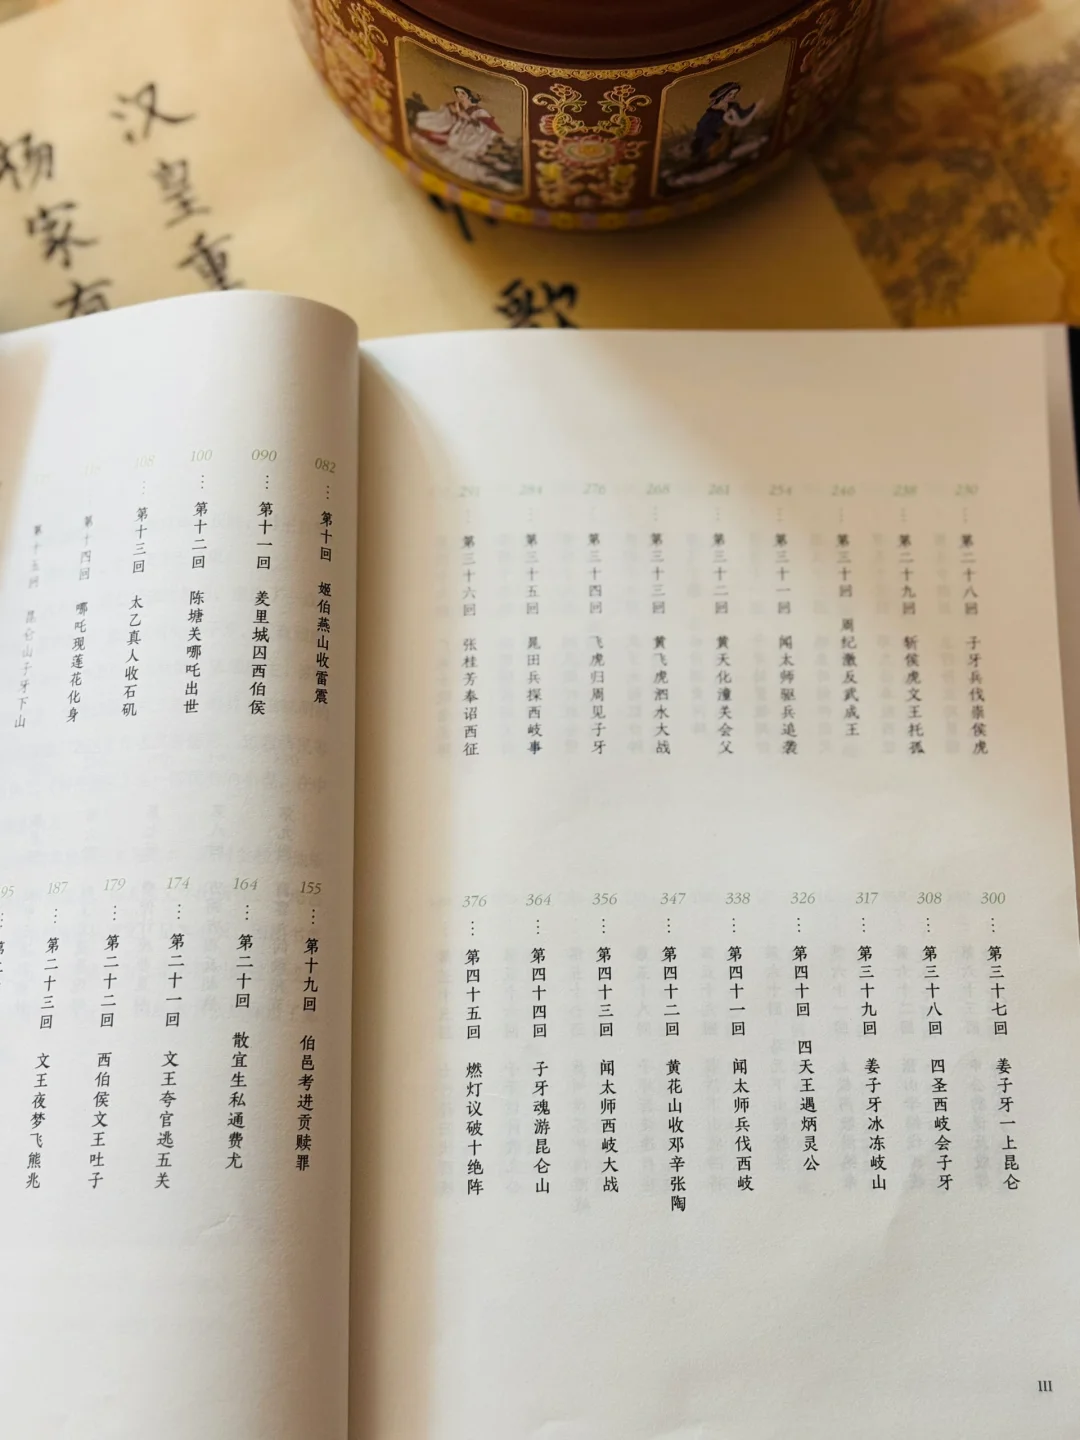 汉皇重
杨家有
歌
082 … 第十回 姬伯燕山收雷震
090 … 第十一回 羑里城囚西伯侯
100 … 第十二回 陈塘关哪吒出世
108 … 第十三回 太乙真人收石矶
第十四回 哪吒现莲花化身
第十五回 昆仑山子牙下山
155 … 第十九回 伯邑考进贡赎罪
164 … 第二十回 散宜生私通费尤
174 … 第二十一回 文王夸官逃五关
179 … 第二十二回 西伯侯文王吐子
187 … 第二十三回 文王夜梦飞熊兆
95 … 第二
230 … 第二十八回 子牙兵伐崇侯虎
238 … 第二十九回 斩侯虎文王托孤
246 … 第三十回 周纪激反武成王
254 … 第三十一回 闻太师驱兵追袭
261 … 第三十二回 黄天化潼关会父
268 … 第三十三回 黄飞虎泗水大战
276 … 第三十四回 飞虎归周见子牙
284 … 第三十五回 晁田兵探西岐事
291 … 第三十六回 张桂芳奉诏西征
300 … 第三十七回 姜子牙一上昆仑
308 … 第三十八回 四圣西岐会子牙
317 … 第三十九回 姜子牙冰冻岐山
326 … 第四十回 四天王遇炳灵公
338 … 第四十一回 闻太师兵伐西岐
347 … 第四十二回 黄花山收邓辛张陶
356 … 第四十三回 闻太师西岐大战
364 … 第四十四回 子牙魂游昆仑山
376 … 第四十五回 燃灯议破十绝阵
III